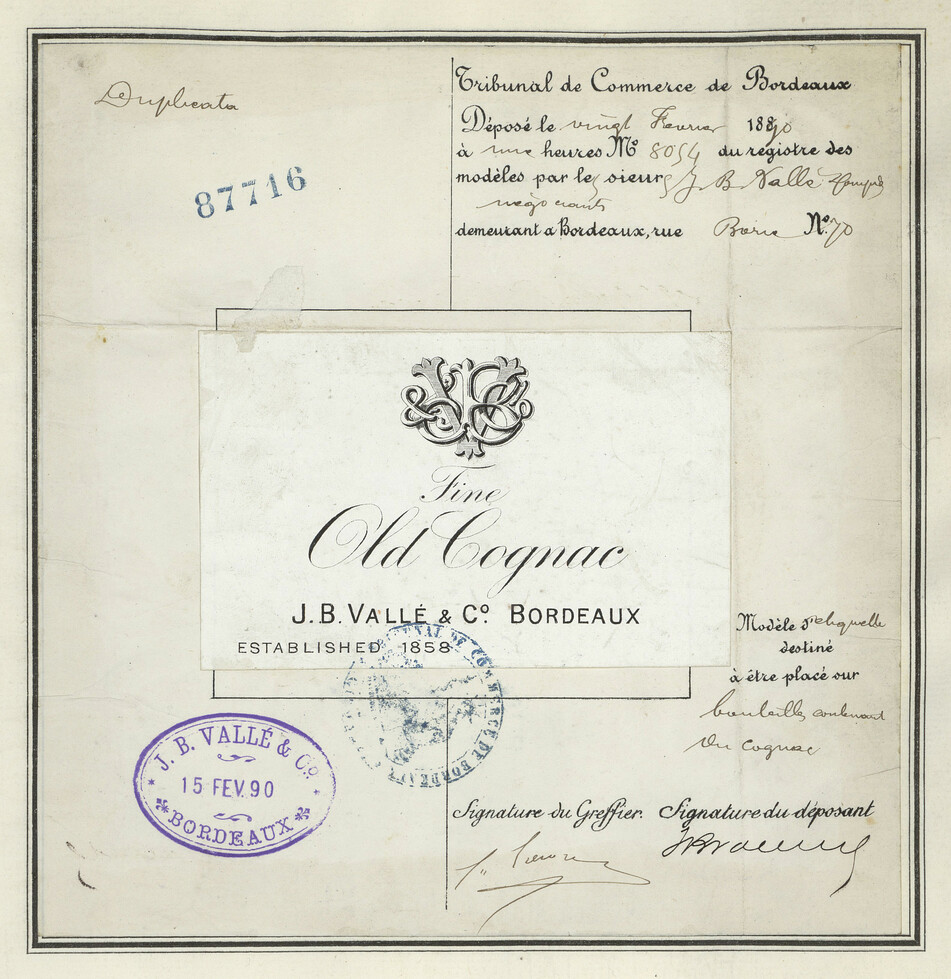 Duplicata
87716
Tribunal de Commerce de Bordeaux
Déposé le vingt Fevrier 1890
à une heures No 8054 du registre des
modèles par les sieurs J B Vallé & Compie
négociants
demeurant à Bordeaux, rue Borie No. 70
Fine
Old Cognac
J. B. VALLÉ & Co. BORDEAUX
ESTABLISHED 1858
TRIBUNAL DE COMMERCE DE BORDEAUX
Modèle d'etiquette
destiné
à être placé sur
bouteilles contenant
du cognac
J. B. VALLÉ & Co.
15 FEV. 90
BORDEAUX
Signature du Greffier. Signature du déposant